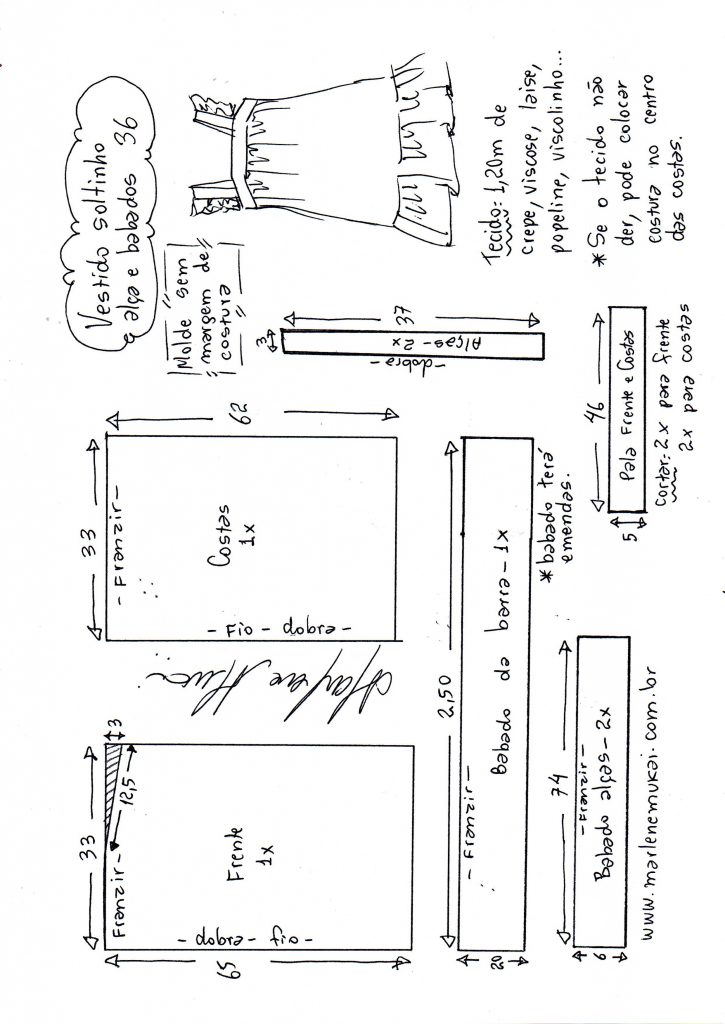 Vestido soltinho
alça e babados 36
Molde sem
margem de
costura
Tecido: 1,20m de
crepe, viscose, laise,
popeline, viscolinho...
*Se o tecido não
der, pode colocar
costura no centro
das costas.
33
65
Franzir-
12,5
3
Frente
1x
-dobra-fio-
33
62
-Franzir-
Costas
1x
-Fio-dobra-
37
3
Alças-2x
-dobra-
2,50
20
-Franzir-
Babado da barra-1x
*babado terá
emendas.
46
5
Pala Frente e Costas
cortar: 2x para frente
2x para costas
74
6
-Franzir-
Babado alças-2x
www.marlenemukai.com.br